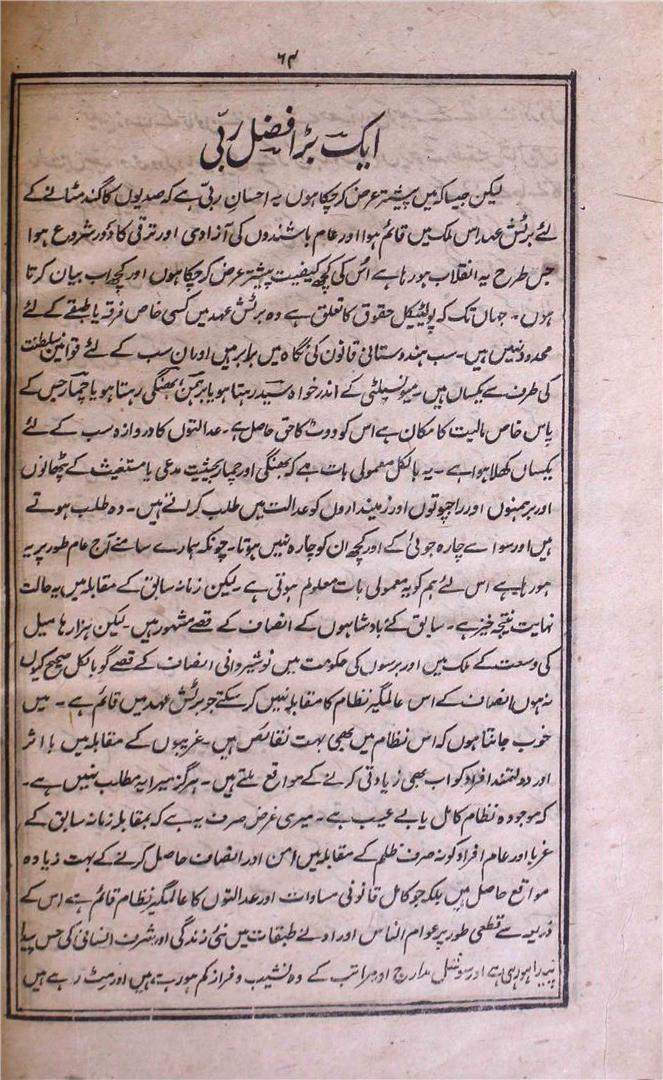 ۶۴
ایک بڑا فضل ربّی
لیکن جیسا کہ میں پیشتر عرض کر چکا ہوں یہ احسان ربّی ہے کہ صدیوں کا گند مٹانے کے
لئے برٹش عہد اس ملک میں قائم ہوا اور عام باشندوں کی آزادی اور ترقی کا دور شروع ہوا
جس طرح یہ انقلاب ہو رہا ہے اُس کی کچھ کیفیت پیشتر عرض کر چکا ہوں اور کچھ اب بیان کرتا
ہوں۔ جہاں تک کہ پولٹیکل حقوق کا تعلق ہے وہ برٹش عہد میں کسی خاص فرقہ یا طبقے کے لئے
محدود نہیں ہیں۔ سب ہندوستانی قانون کی نگاہ میں برابر ہیں اور ان سب کے لئے قوانین سلطنت
کی طرف سے یکساں ہیں۔ میونسپلٹی کے اندر خواہ سیّد رہتا ہو یا برہمن بھنگی رہتا ہو یا چمار جس کے
پاس خاص مالیت کا مکان ہے اس کو ووٹ کا حق حاصل ہے۔ عدالتوں کا دروازہ سب کے لئے
یکساں کھلا ہوا ہے۔ یہ بالکل معمولی بات ہے کہ بھنگی اور چمار بحیثیت مدعی یا مستغیث کے پٹھانوں
اور برہمنوں اور راجپوتوں اور زمینداروں کو عدالت میں طلب کراتے ہیں۔ وہ طلب ہوتے
ہیں اور سوائے چارہ جوئی کے اور کچھ ان کو چارہ نہیں ہوتا۔ چونکہ ہمارے سامنے آج عام طور پر یہ
ہو رہا ہے اس لئے ہم کو یہ معمولی بات معلوم ہوتی ہے۔ لیکن زمانہ سابق کے مقابلہ میں یہ حالت
نہایت نتیجہ خیز ہے۔ سابق کے بادشاہوں کے انصاف کے قصے مشہور ہیں۔ لیکن ہزارہا میل
کی وسعت کے ملک میں اور برسوں کی حکومت میں نوشیروانی انصاف کے قصے گو بالکل صحیح کیوں
نہ ہوں انصاف کے اس عالمگیر نظام کا مقابلہ نہیں کر سکتے جو برٹش عہد میں قائم ہے۔ میں
خوب جانتا ہوں کہ اس نظام میں بھی بہت نقائص ہیں۔ غریبوں کے مقابلہ میں با اثر
اور دولتمند افراد کو اب بھی زیادتی کرنے کے مواقع ملتے ہیں۔ ہرگز میرا یہ مطلب نہیں ہے۔
کہ موجودہ نظام کامل یا بے عیب ہے۔ میری غرض صرف یہ ہے کہ بمقابلہ زمانہ سابق کے
غربا اور عام افراد کو نہ صرف ظلم کے مقابلہ میں امن اور انصاف حاصل کرنے کے بہت زیادہ
مواقع حاصل ہیں بلکہ جو کامل قانونی مساوات اور عدالتوں کا عالمگیر نظام قائم ہے اس کے
ذریعہ سے قطعی طور پر عوام الناس اور ادنےٰ طبقات میں نئی زندگی اور شرف انسانی کی جس پیدا
ہو رہی ہے اور سوشل مدارج اور مراتب کے وہ نشیب و فراز کم ہو رہے ہیں اور مٹ رہے ہیں